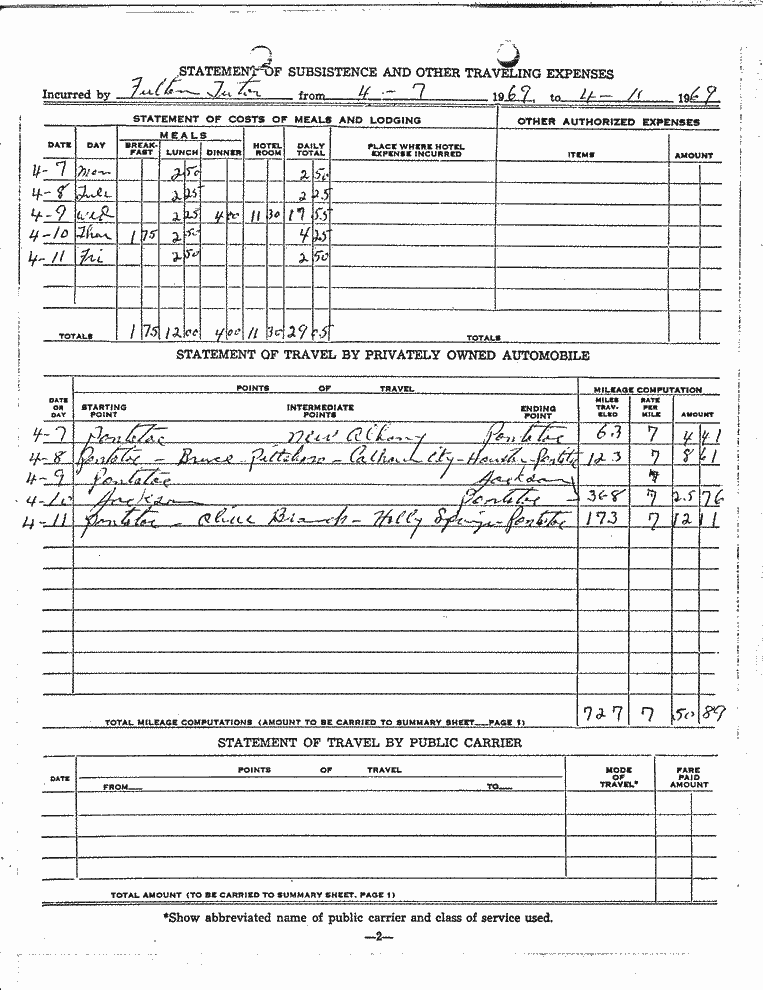 STATEMENT OF SUBSISTENCE AND OTHER TRAVELING EXPENSES
Incurred by Fulton Tutor from 4-7 1969, to 4-11 1969
STATEMENT OF COSTS OF MEALS AND LODGING OTHER AUTHORIZED EXPENSES
MEALS
DATE DAY BREAK-FAST LUNCH DINNER HOTEL ROOM DAILY TOTAL PLACE WHERE HOTEL EXPENSE INCURRED ITEMS AMOUNT
4-7 Mon 2 50 2 50
4-8 Tues 2 25 2 25
4-9 Wed 2 25 4 00 11 30 17 55
4-10 Thur 1 75 2 50 4 25
4-11 Fri 2 50 2 50
TOTALS 1 75 12 00 4 00 11 30 29 05 TOTALS
STATEMENT OF TRAVEL BY PRIVATELY OWNED AUTOMOBILE
POINTS OF TRAVEL MILEAGE COMPUTATION
DATE OR DAY STARTING POINT INTERMEDIATE POINTS ENDING POINT MILES TRAV-ELED RATE PER MILE AMOUNT
4-7 Pontotoc New Albany Pontotoc 63 7 4 41
4-8 Pontotoc - Bruce - Pittsboro - Calhoun City - Houston - Pontotoc 123 7 8 61
4-9 Pontotoc Jackson
4-10 Jackson Pontotoc 368 7 25 76
4-11 Pontotoc - Olive Branch - Holly Springs - Pontotoc 173 7 12 11
TOTAL MILEAGE COMPUTATIONS (AMOUNT TO BE CARRIED TO SUMMARY SHEET___PAGE 1) 727 7 50 89
STATEMENT OF TRAVEL BY PUBLIC CARRIER
DATE POINTS OF TRAVEL MODE OF TRAVEL* FARE PAID AMOUNT
FROM___ TO___
TOTAL AMOUNT (TO BE CARRIED TO SUMMARY SHEET. PAGE 1)
*Show abbreviated name of public carrier and class of service used.
—2—